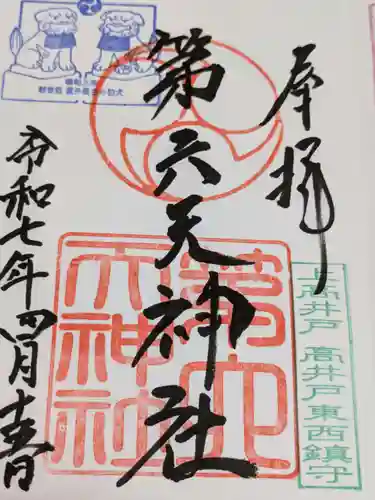 奉拝
第六天神社
令和七年四月吉日
上高井戸 高井戸東西鎮守
第六
天神社